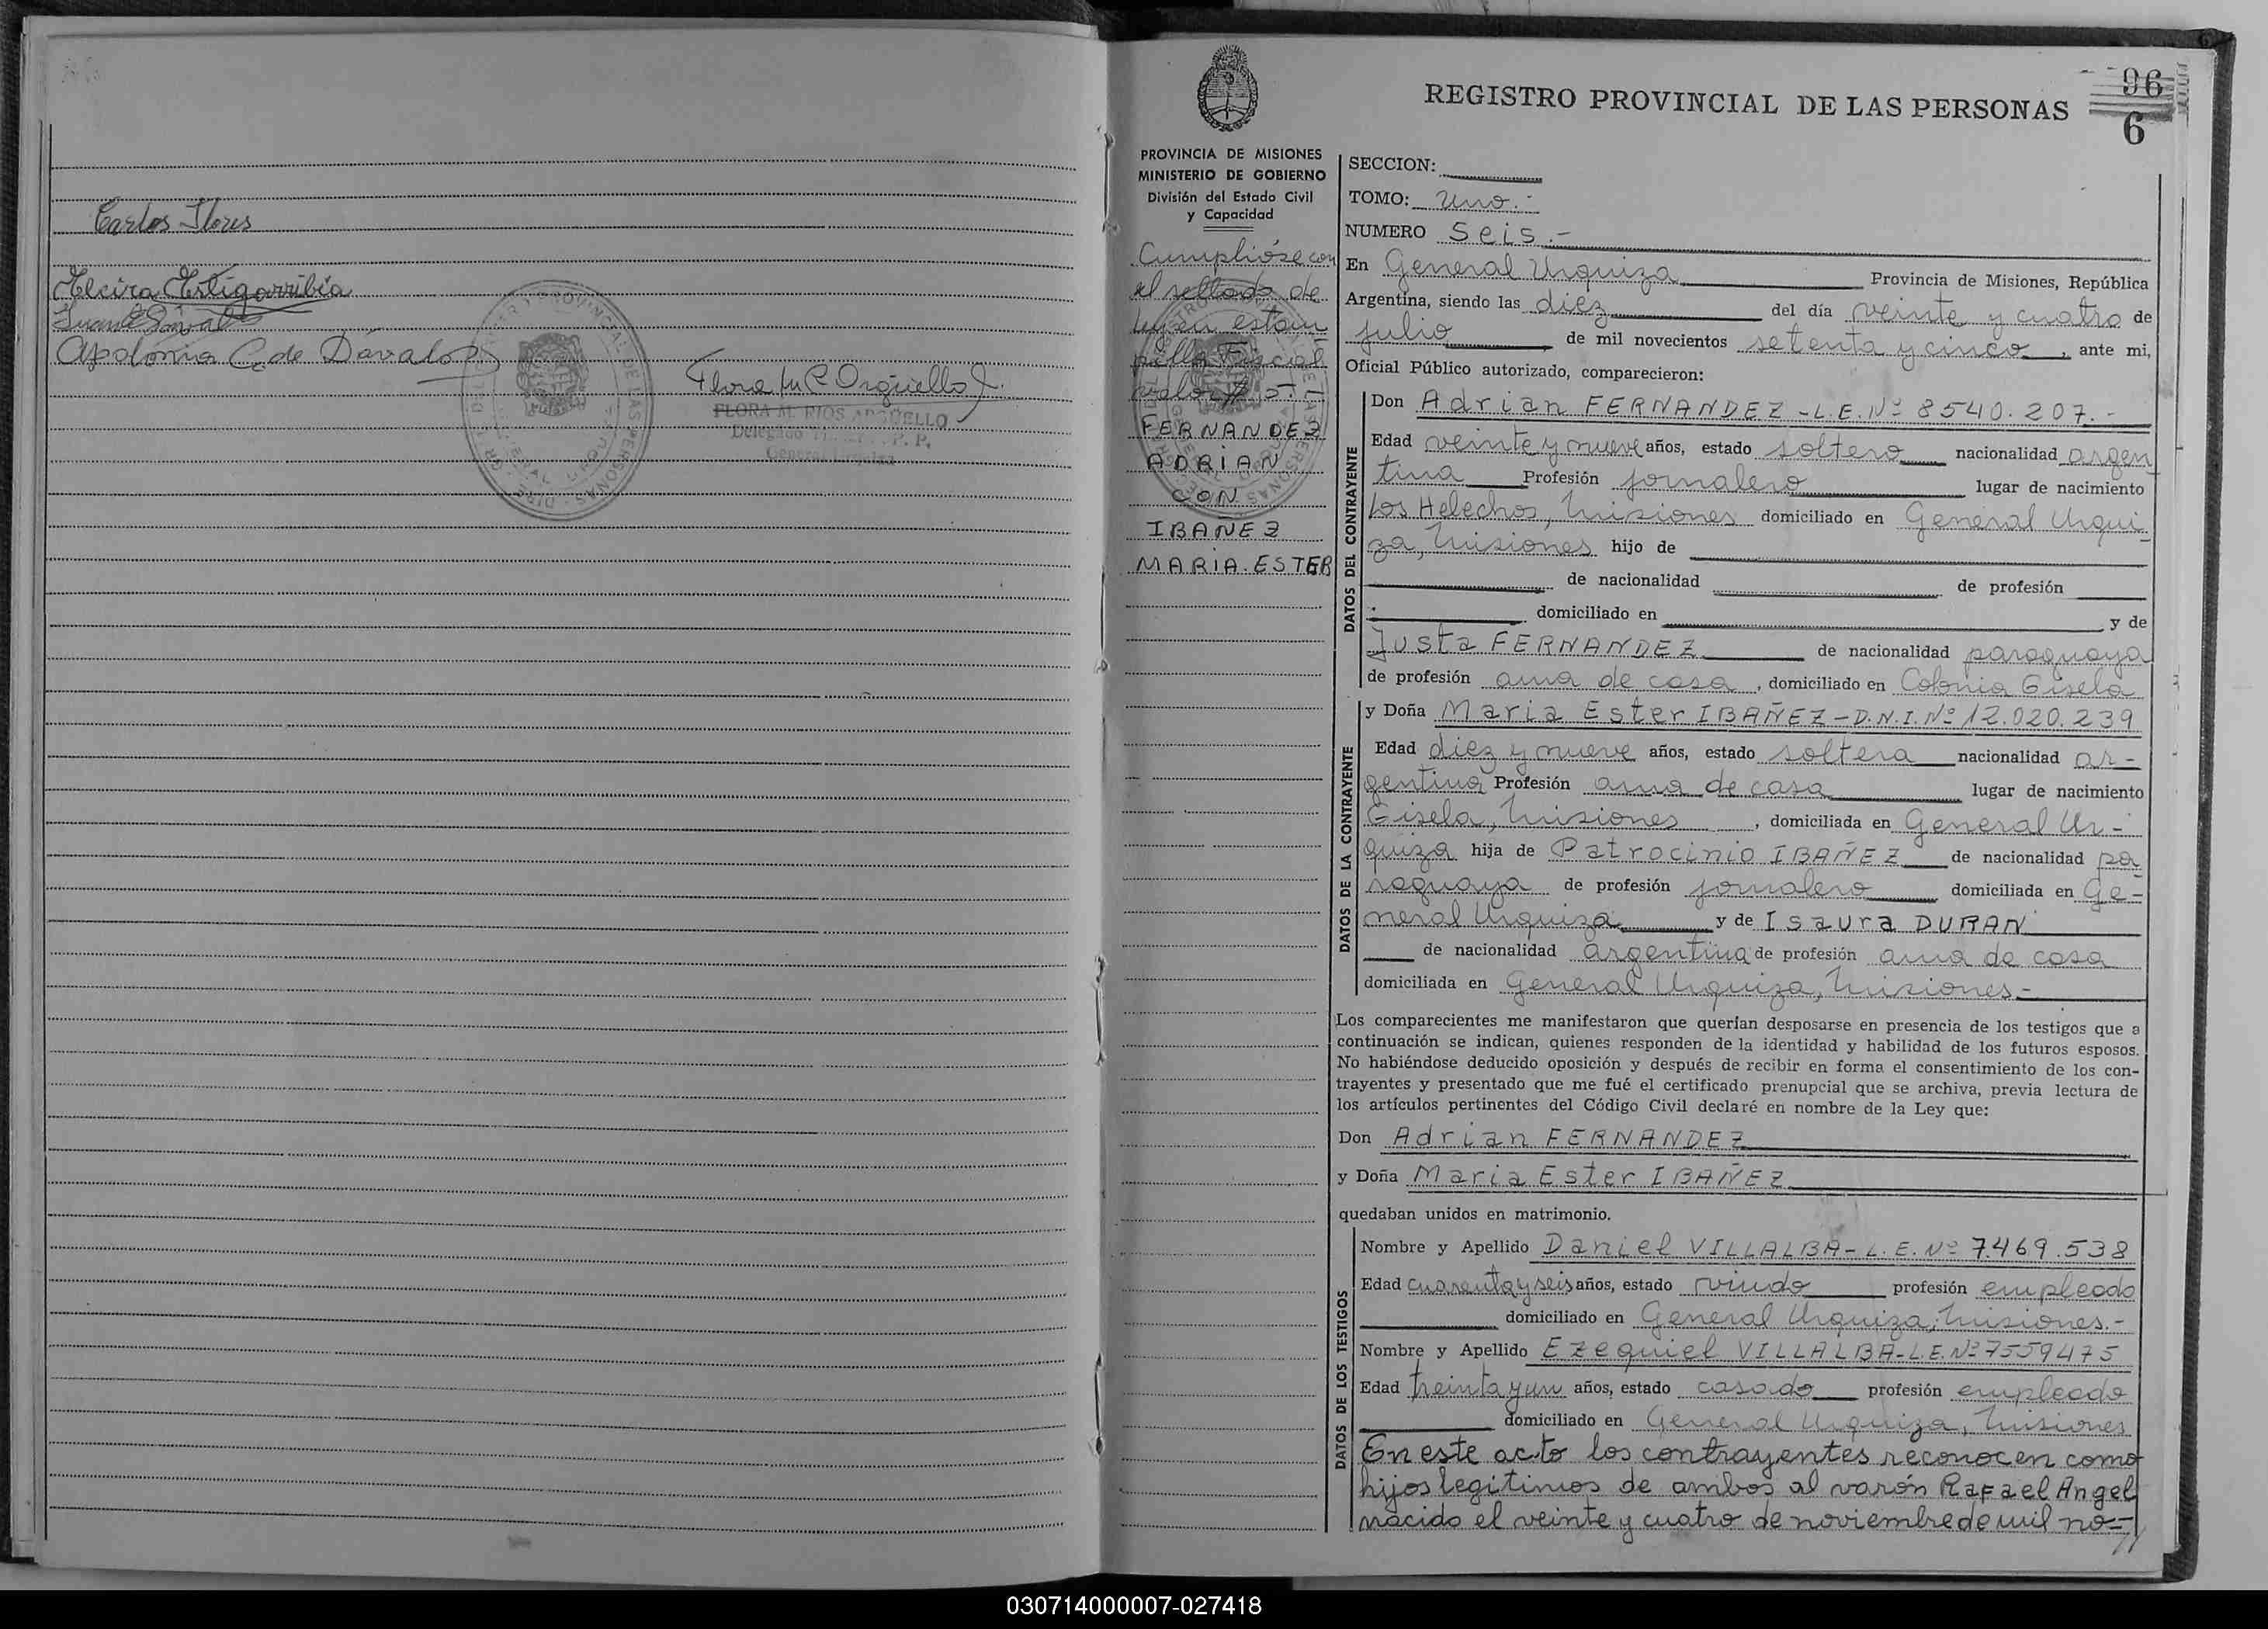 Carlos Flores
Elcira Estigarribia
Apolonia C. de Dávalos
FLORA M. RIOS ARGÜELLO
Delegado
General Urquiza
96
6
REGISTRO PROVINCIAL DE LAS PERSONAS
PROVINCIA DE MISIONES
MINISTERIO DE GOBIERNO
División del Estado Civil
y Capacidad
Cumplióse con
el sellado de
ley en estam
pilla Fiscal
valor $ 5.-
FERNANDEZ
ADRIAN
CON
IBAÑEZ
MARIA ESTER
SECCION:
TOMO: Uno.-
NUMERO Seis.-
En General Urquiza Provincia de Misiones, República
Argentina, siendo las diez del día veinte y cuatro de
julio de mil novecientos setenta y cinco, ante mi,
Oficial Público autorizado, comparecieron:
DATOS DEL CONTRAYENTE
Don Adrian FERNANDEZ - L.E. Nº 8540.207.-
Edad veinte y nueve años, estado soltero nacionalidad argen
tina Profesión jornalero lugar de nacimiento
Los Helechos, Misiones domiciliado en General Urqui
za, Misiones hijo de
de nacionalidad de profesión
domiciliado en y de
Justa FERNANDEZ de nacionalidad paraguaya
de profesión ama de casa, domiciliado en Colonia Gisela
DATOS DE LA CONTRAYENTE
y Doña Maria Ester IBAÑEZ - D.N.I. Nº 12.020.239
Edad diez y nueve años, estado soltera nacionalidad ar-
gentina Profesión ama de casa lugar de nacimiento
Gisela, Misiones, domiciliada en General Ur-
quiza hija de Patrocinio IBAÑEZ de nacionalidad pa
raguaya de profesión jornalero domiciliada en Ge-
neral Urquiza y de Isaura DURAN
de nacionalidad argentina de profesión ama de casa
domiciliada en General Urquiza, Misiones.-
Los comparecientes me manifestaron que querían desposarse en presencia de los testigos que a
continuación se indican, quienes responden de la identidad y habilidad de los futuros esposos.
No habiéndose deducido oposición y después de recibir en forma el consentimiento de los con-
trayentes y presentado que me fué el certificado prenupcial que se archiva, previa lectura de
los artículos pertinentes del Código Civil declaré en nombre de la Ley que:
Don Adrian FERNANDEZ
y Doña Maria Ester IBAÑEZ
quedaban unidos en matrimonio.
DATOS DE LOS TESTIGOS
Nombre y Apellido Daniel VILLALBA - L.E. Nº 7.469.538
Edad cuarenta y seis años, estado viudo profesión empleado
domiciliado en General Urquiza, Misiones.-
Nombre y Apellido Ezequiel VILLALBA - L.E. Nº 7559475
Edad treinta y un años, estado casado profesión empleado
domiciliado en General Urquiza, Misiones
En este acto los contrayentes reconocen como
hijos legítimos de ambos al varón Rafael Angel
nacido el veinte y cuatro de noviembre de mil no=
030714000007-027418